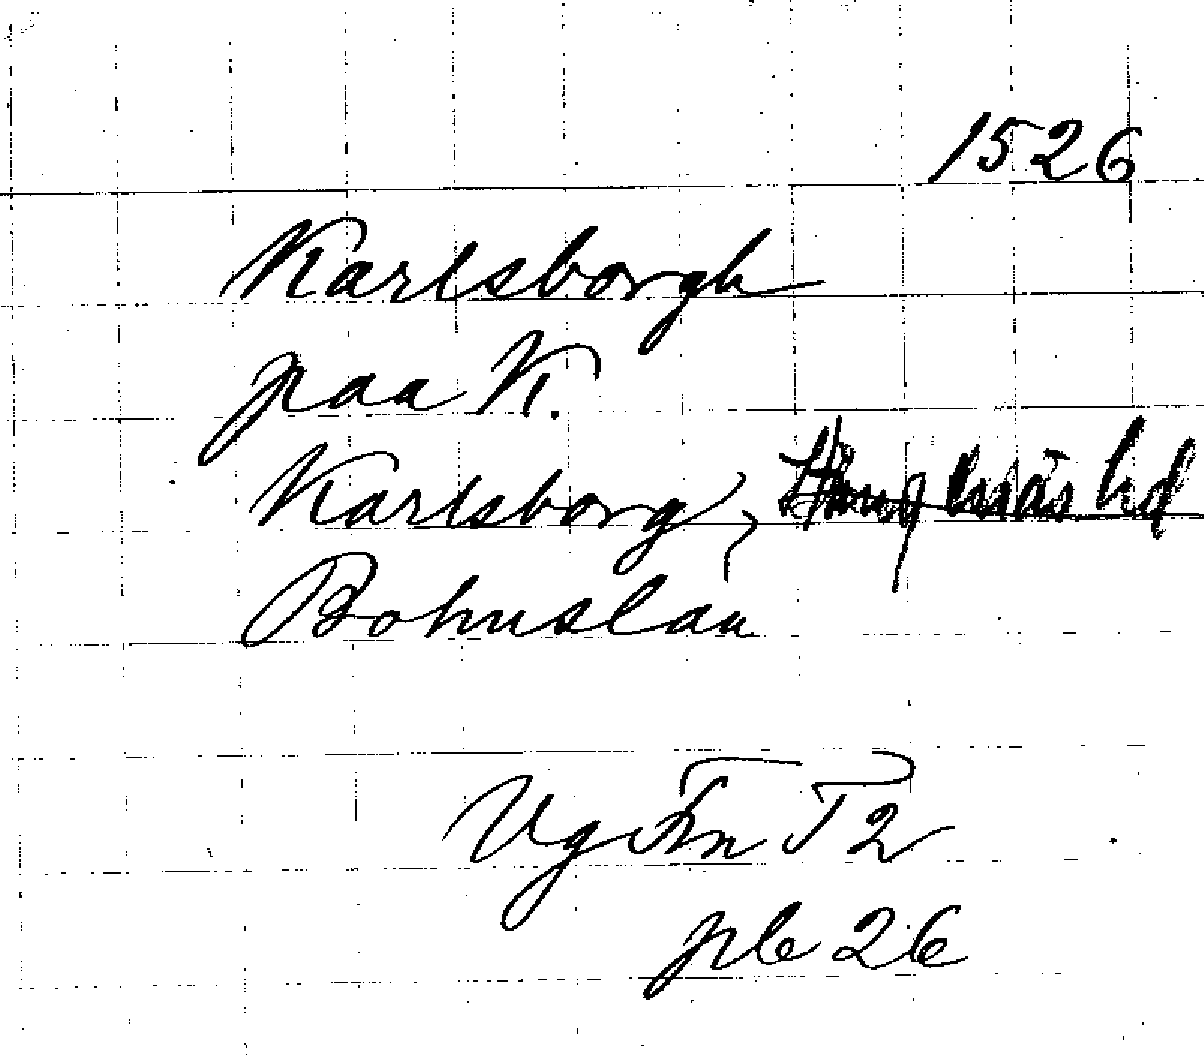 1526
Karlsborgh
paa K.
Karlsborg, hd
Bohuslän
Vg Fn T2
plb 26